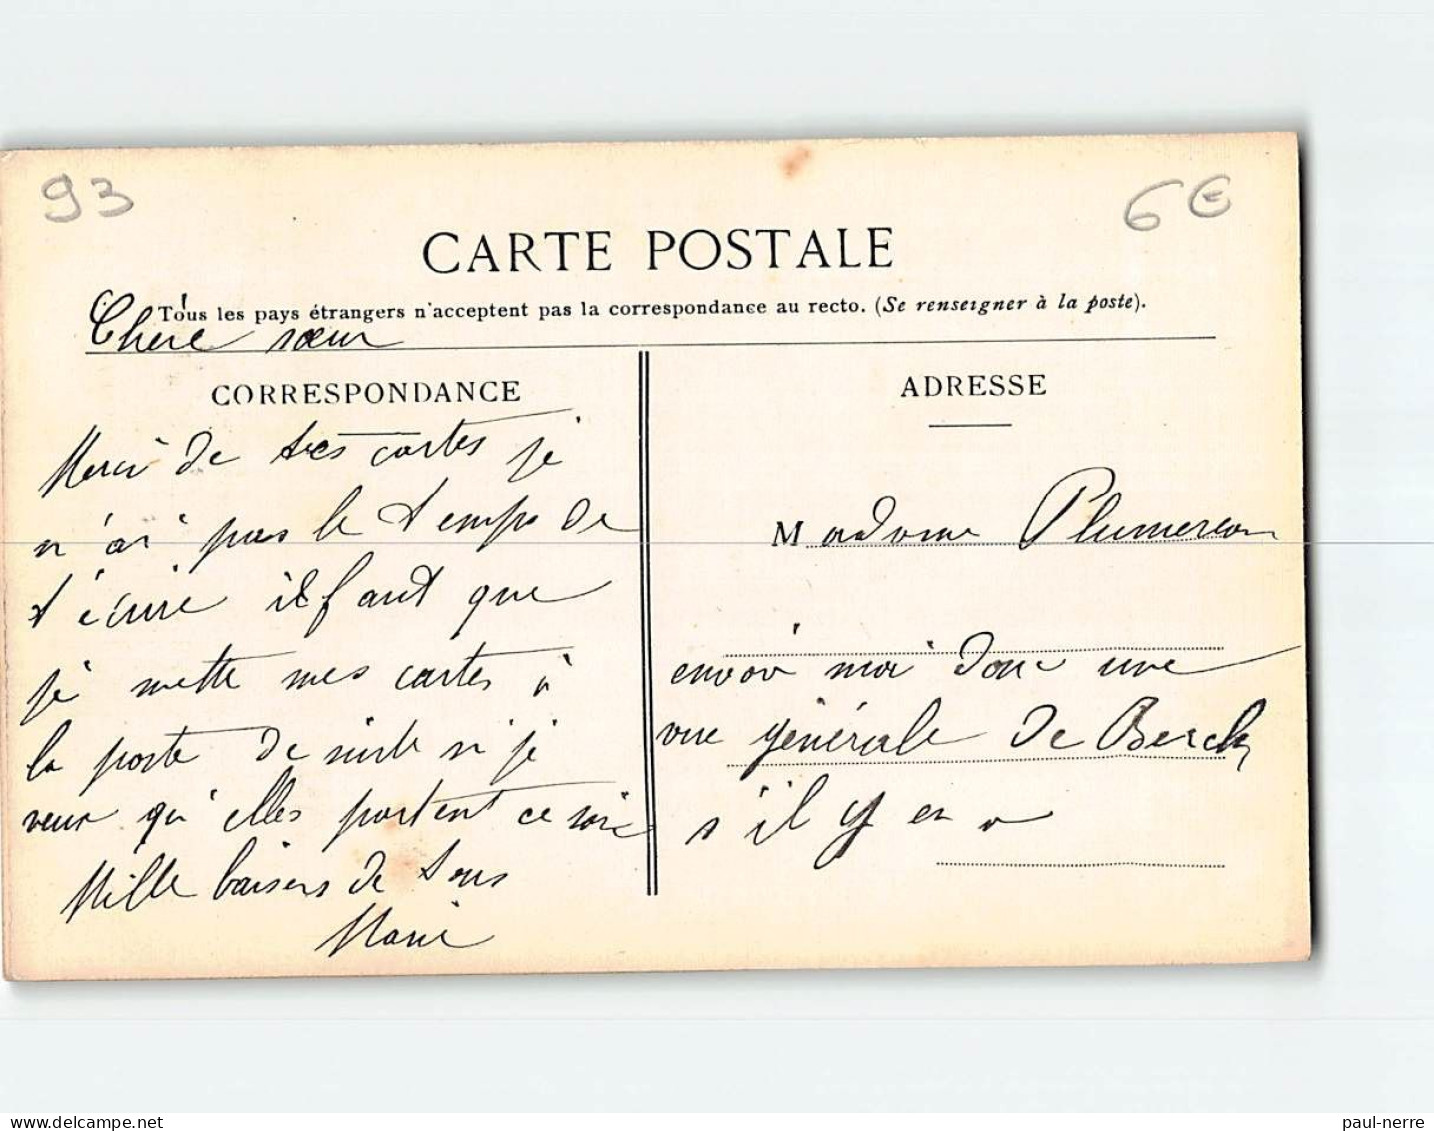 93
6€
CARTE POSTALE
Tous les pays étrangers n'acceptent pas la correspondance au recto. (Se renseigner à la poste).
Chere sœur
CORRESPONDANCE
Merci de tes cartes je
n'ai pas le temps de
t'écrire il faut que
je mette mes cartes à
la poste de suite si je
veux qu'elles partent ce soir
Mille baisers de tous
Marie
ADRESSE
Madame Plumereau
envoi moi donc une
vue générale de Berck
s'il y en a
delcampe.net
paul-nerre